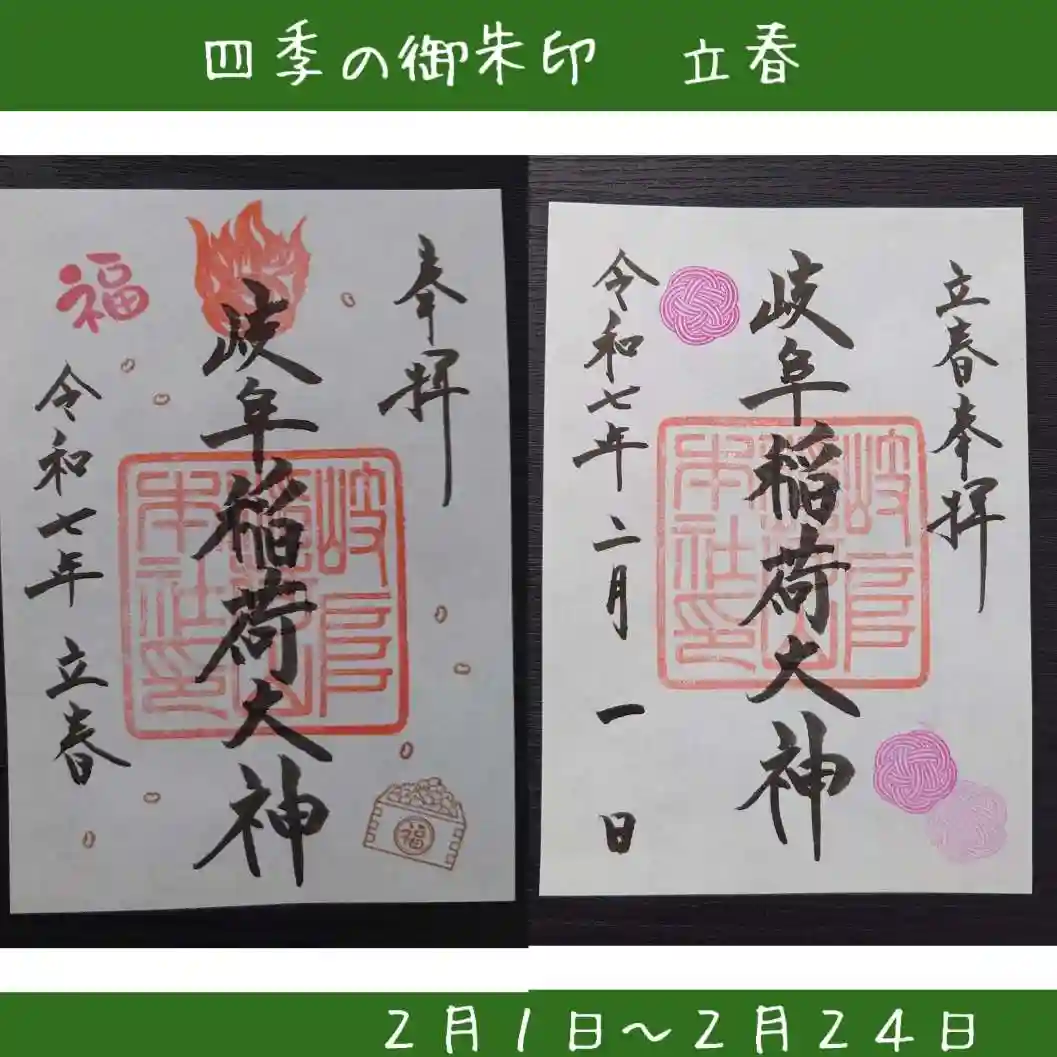 四季の御朱印　立春
奉拝
岐阜稲荷大神
令和七年 立春
福
福
立春奉拝
岐阜稲荷大神
令和七年 二月 一 日
2月1日～2月24日